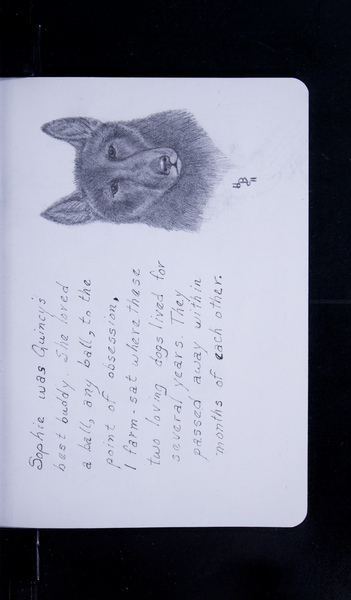 Sophie was Quincy's
best buddy. She loved
a ball, any ball, to the
point of obsession.
I farm-sat where these
two loving dogs lived for
several years. They
passed away within
months of each other.